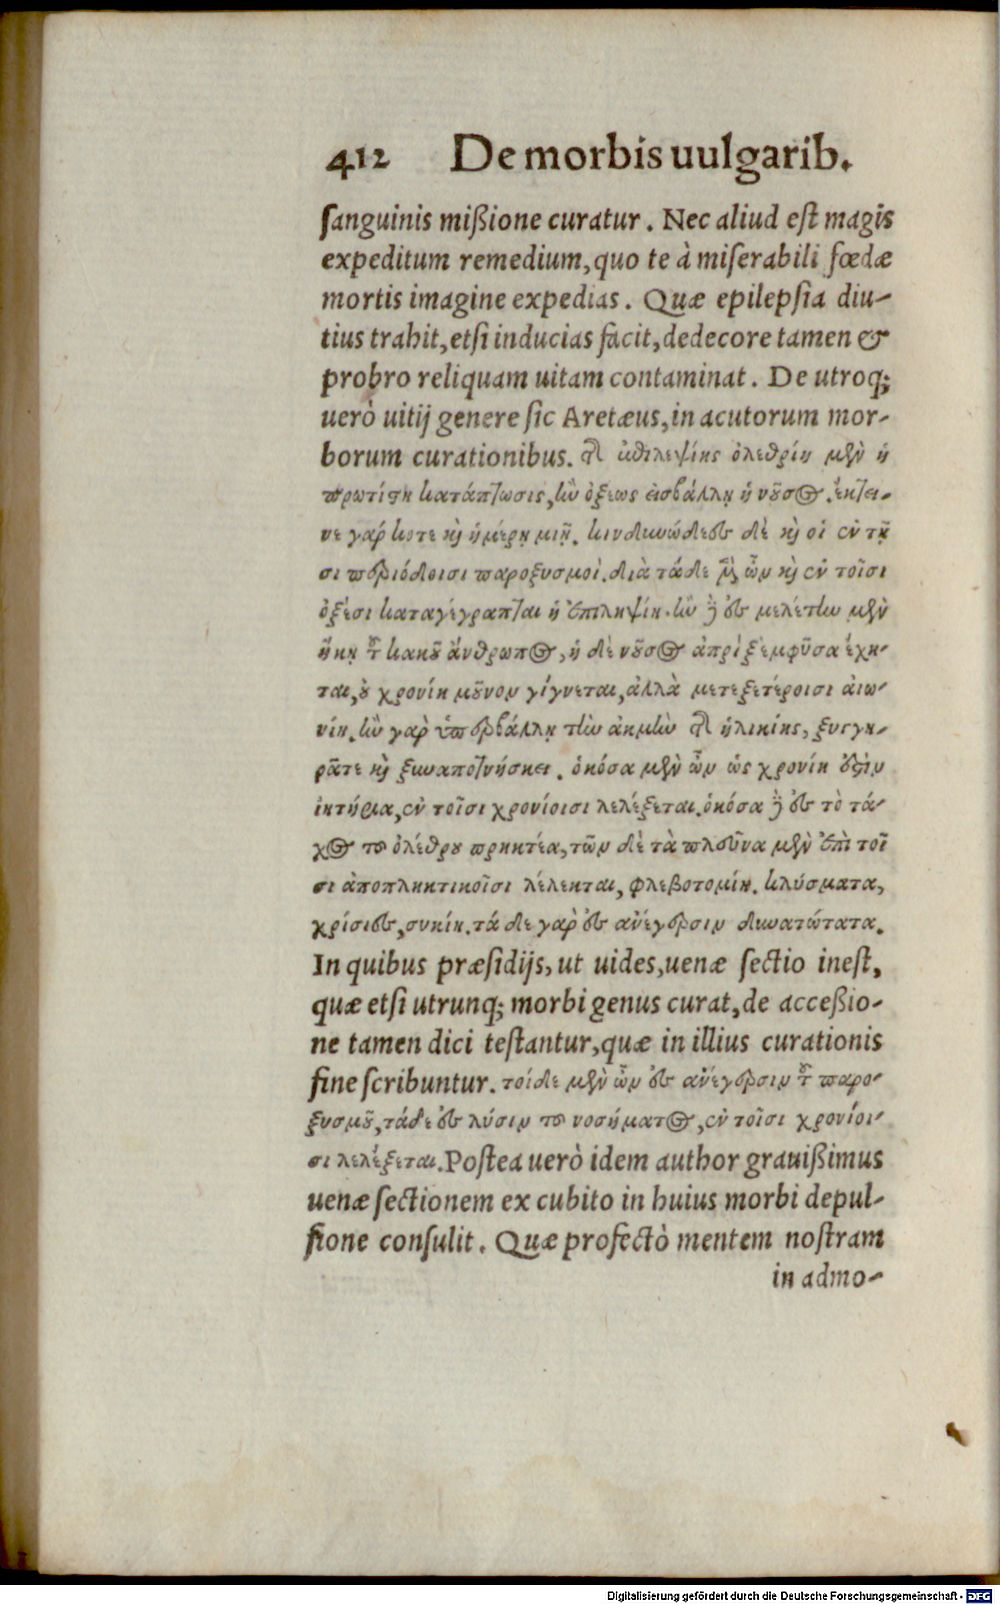 412 De morbis uulgarib.
sanguinis mißione curatur. Nec aliud est magis
expeditum remedium, quo te à miserabili fœdæ
mortis imagine expedias. Quæ epilepsia diu-
tius trahit, etsi inducias facit, dedecore tamen &
probro reliquam uitam contaminat. De utroq;
uerò uitij genere sic Aretæus, in acutorum mor-
borum curationibus. τῆς ὀλεθρίη μὲν ἡ
πρωτίστη κατάπτωσις, ἢν ὀξέως ἐισβάλλῃ ἡ νοῦσος. ἔκτει-
νε γάρ κοτε καὶ ἡμέρῃ μιῇ. κινδυνώδεες δὲ καὶ οἱ ἐν τῇ-
σι περιόδοισι παροξυσμοί. διὰ τάδε μὲν ὦν καὶ ἐν τοῖσι
ὀξέσι καταγέγραπται ἡ ἐπιληψίη. ἢν δὲ ἐς μελέτην μὲν
ἥκῃ τοῦ κακοῦ ἄνθρωπος, ἡ δὲ νοῦσος ἀπρὶξ ἐμφῦσα ἔχη-
ται, οὐ χρονίη μοῦνον γίγνεται, ἀλλὰ μετεξετέροισι ἀιω-
νίη. ἢν γὰρ ὑπερβάλλῃ τὴν ἀκμὴν τῆς ἡλικίης, ξυγγη-
ρᾶτε καὶ ξυναποθνήσκει. ὁκόσα μὲν ὦν ὡς χρονίη ἐστὶν
ἰητήρια, ἐν τοῖσι χρονίοισι λελέξεται. ὁκόσα δὲ ἐς τὸ τά-
χος τοῦ ὀλέθρου πρηκτέα, τῶν δὲ τὰ πλεῦνα μὲν ἐπὶ τοῖ
σι ἀποπληκτικοῖσι λέλεκται, φλεβοτομίη. κλύσματα,
χρίσιες, συκίη. τάδε γὰρ ἐς ἀνέγερσιν δυνατώτατα.
In quibus præsidijs, ut uides, uenæ sectio inest,
quæ etsi utrunq; morbi genus curat, de acceßio-
ne tamen dici testantur, quæ in illius curationis
fine scribuntur. τοίδε μὲν ὦν ἐς ἀνέγερσιν τοῦ παρο-
ξυσμοῦ, τάδε ἐς λύσιν τοῦ νοσήματος, ἐν τοῖσι χρονίοι-
σι λελέξεται. Postea uerò idem author grauißimus
uenæ sectionem ex cubito in huius morbi depul-
sione consulit. Quæ profectò mentem nostram
in admo-
Digitalisierung gefördert durch die Deutsche Forschungsgemeinschaft - DFG